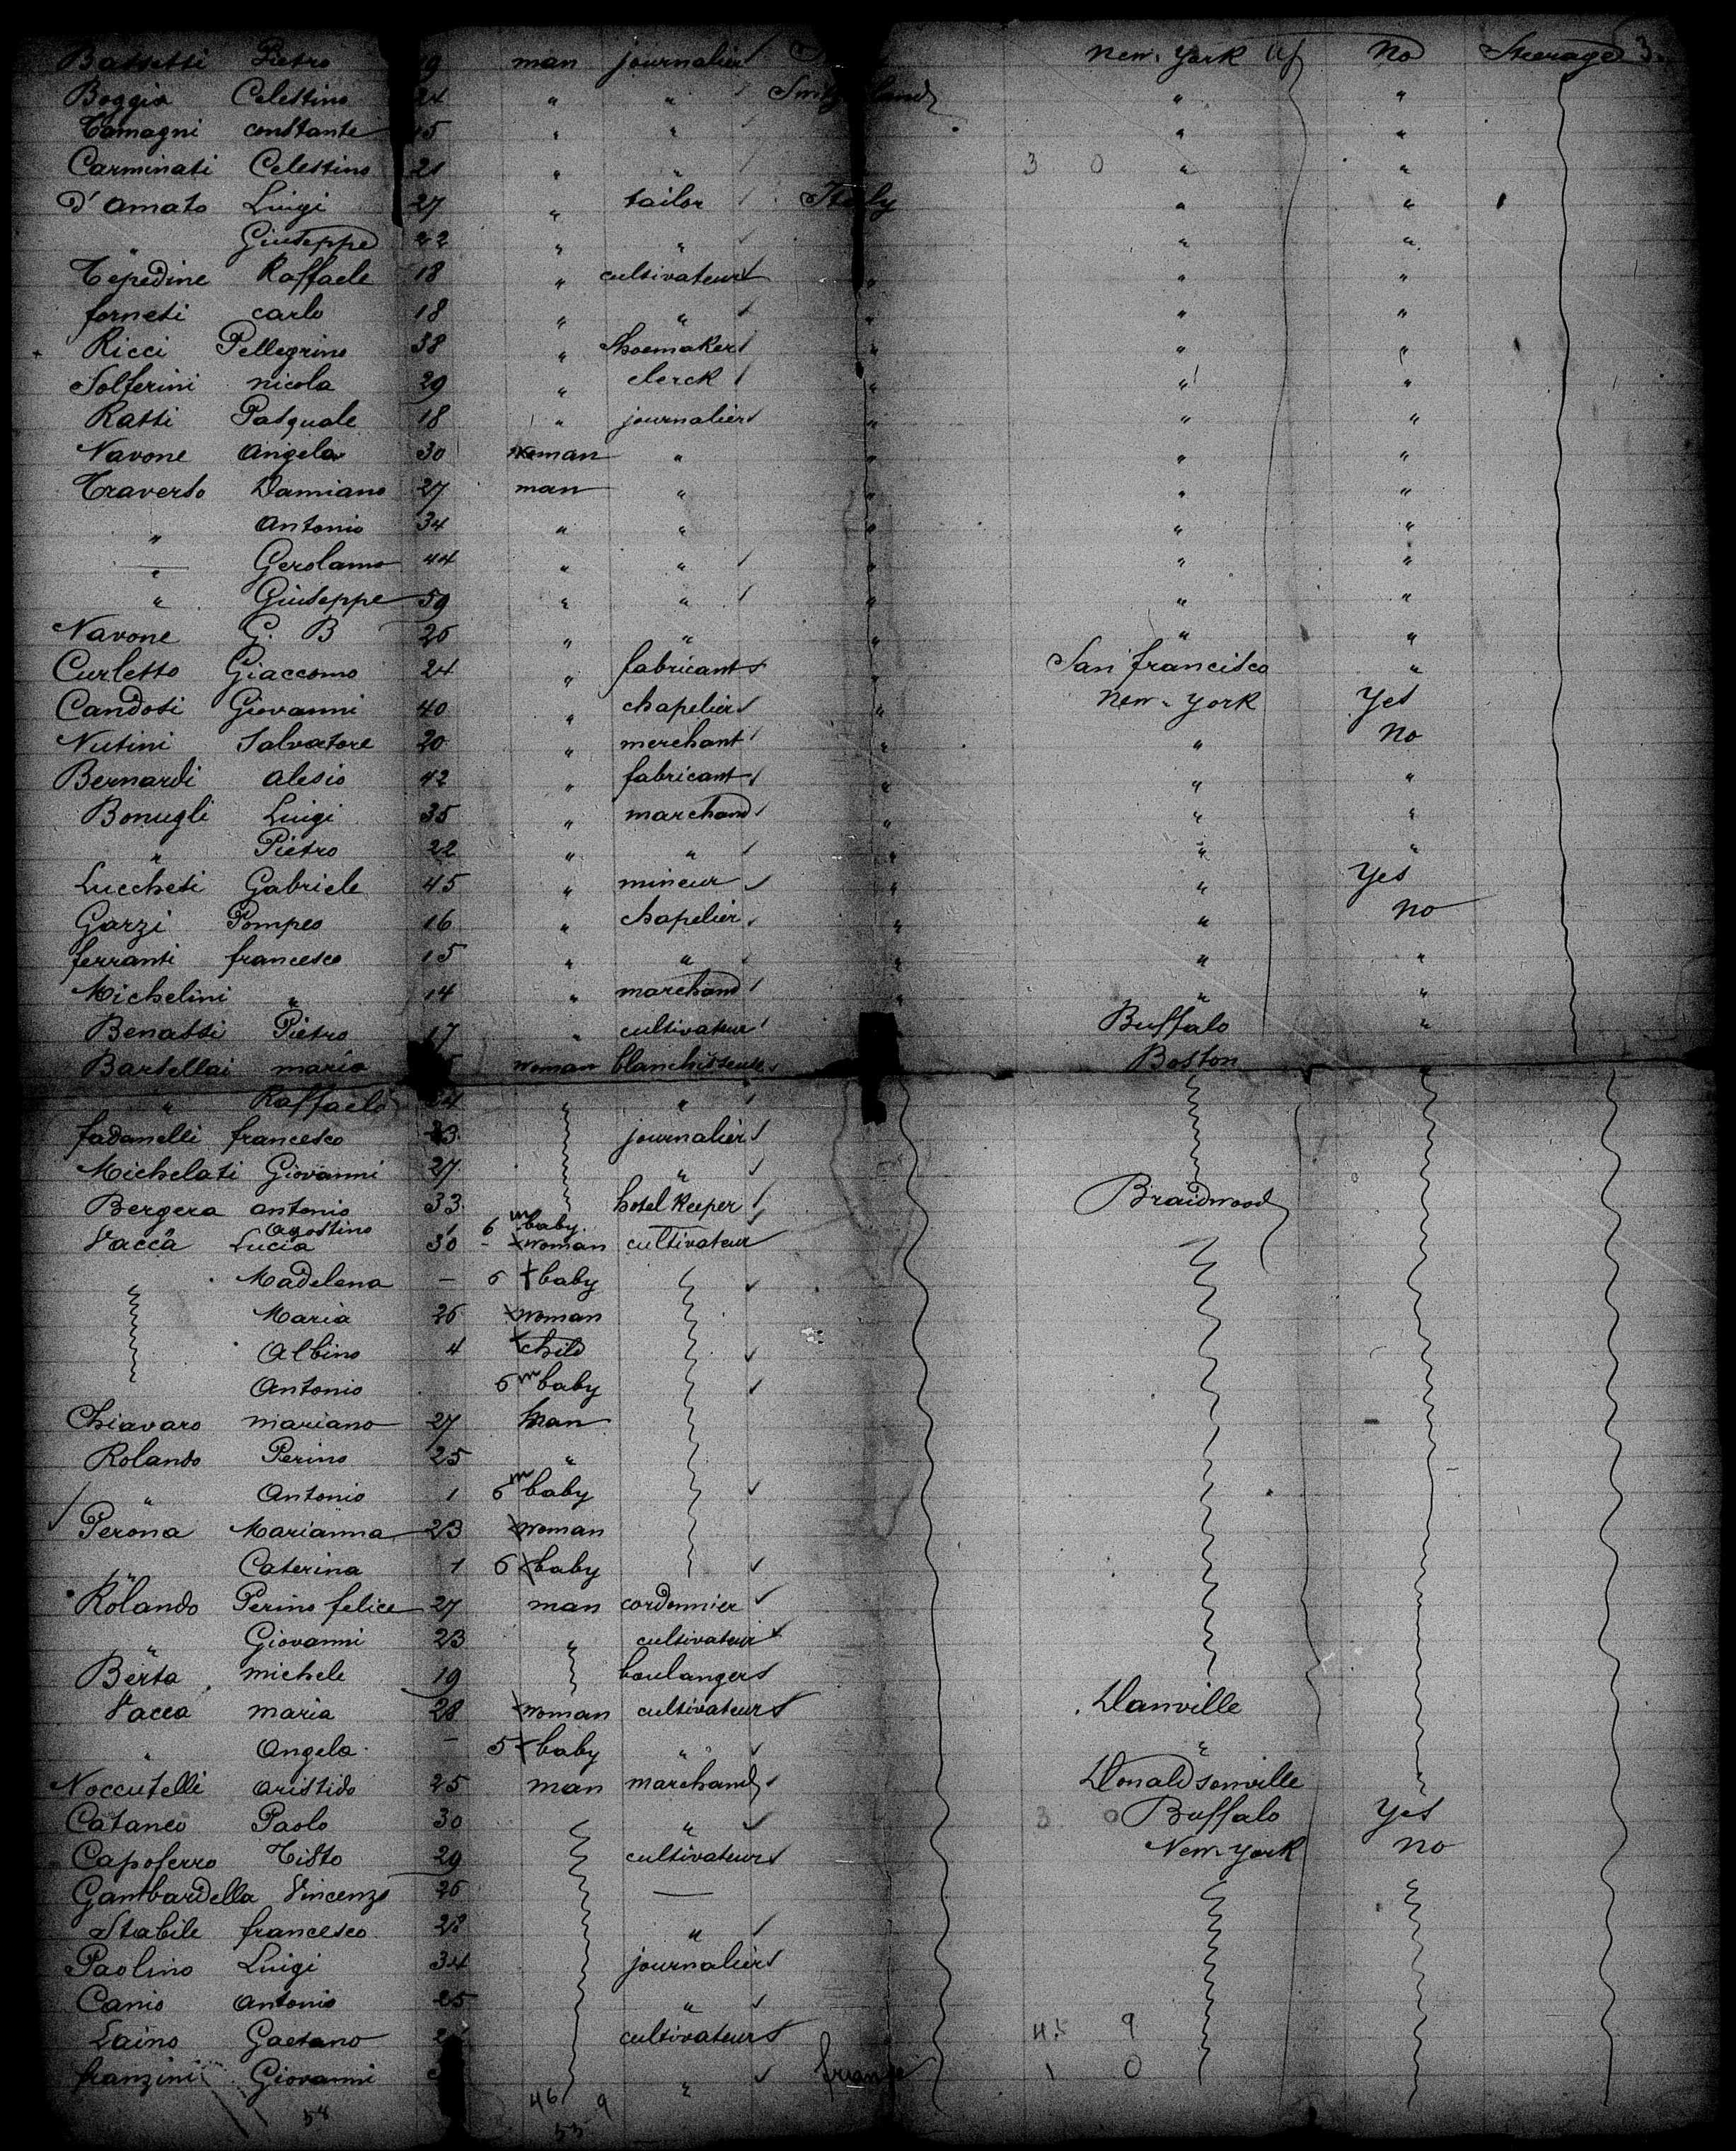 Bassetti Pietro 19 man journalier New-York U No Steerage 3.
Boggia Celestino 24 " " Switzerland " "
Tamagni constante 15 " " " "
Carminati Celestino 21 " " 3 0 " "
D'amato Luigi 27 " tailor Italy " "
" Giuseppe 22 " " " "
Tepedine Raffaele 18 " cultivateur " " "
forneti carlo 18 " " " " "
Ricci Pellegrino 38 " Shoemaker " " "
Solferini nicola 29 " clerck " " "
Ratti Pasquale 18 " journalier " " "
Navone Angela 30 woman " " " "
Traverso Damiano 27 man " " " "
" Antonio 34 " " " " "
" Gerolamo 44 " " " " "
" Giuseppe 59 " " " " "
Navone G. B 26 " " " " "
Curletto Giaccomo 24 " fabricant " San francisco "
Candoti Giovanni 40 " chapelier " New-York Yes
Nutini Salvatore 20 " merchant " " No
Bernardi alesio 42 " fabricant " " "
Bonugli Luigi 35 " marchand " " "
" Pietro 22 " " " " "
Luccheti Gabriele 45 " mineur " " Yes
Garzi Pompeo 16 " chapelier " " no
ferranti francesco 15 " " " " "
Michelini " 14 " marchand " " "
Benassi Pietro 17 " cultivateur Buffalo "
Bartellai maria woman blanchisseuse Boston "
" Raffaelo 34 " "
fadanelli francesco 23 journalier
Michelati Giovanni 27 "
Bergera antonio 33 hotel Keeper Braidwood
" Agostino 1 6 m baby
Vacca Lucia 30 - woman cultivateur
Madelena - 6 baby
Maria 26 woman
Albino 4 child
Antonio 6 m baby
Chiavaro mariano 27 man
Rolando Perino 25 "
" Antonio 1 6 m baby
Perona Marianna 23 woman
" Caterina 1 6 baby
Rolando Perino felice 27 man cordonnier
" Giovanni 23 " cultivateur
Berta michele 19 boulanger
Vacca maria 28 woman cultivateur Danville
" Angela - 5 baby " "
Noccutelli aristido 25 man marchand Donaldsonville "
Cataneo Paolo 30 " 3 0 Buffalo Yes
Capoferro Tisto 29 cultivateur New-York no
Gambardella Vincenzo 26 —
Stabile francesco 28 "
Paolino Luigi 34 journalier
Canio Antonio 25 "
Laino Gaetano cultivateur 45 9
franzini Giovanni " france 1 0
58 46 9
55